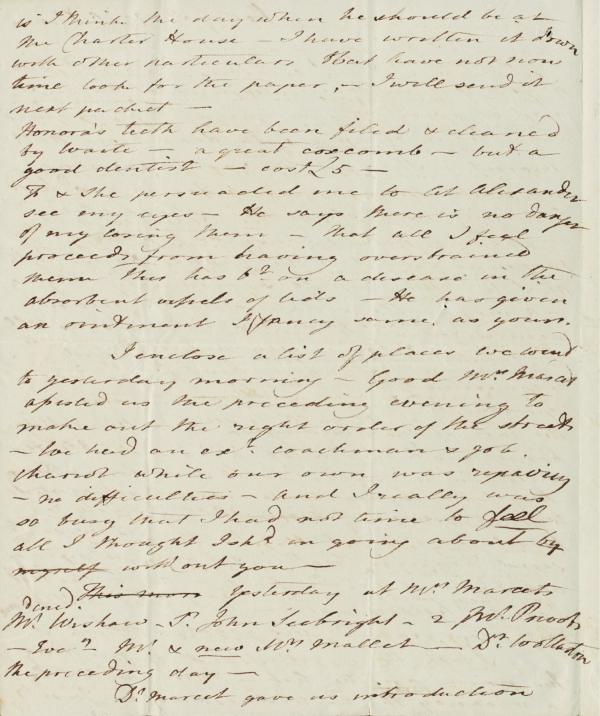 is I think the day when he should be at
the Charter House – I have written it down
with other particulars that have not now
time look for the paper, – I will send it
next packet –
Honora's teeth have been filed & cleaned
by Waite – a great coxcomb – but a
good dentist – cost £5 –
F & she persuaded me to let Alexander
see my eyes – He says there is no danger
of my losing them – that all I feel
proceeds from having overstrained
them This has bt on a disease in the
absorbent vessels of lids – He has given
an ointment I fancy same as yours.
I enclose a list of places we went
to yesterday morning – Good Mrs Marcet
assisted us the preceding evening to
make out the right order of the streets
– We had an ext coachman & job
chariot while our own was repairing
– no difficulties – and I really was
so busy that I had not time to feel
all I thought I shd in going about by
myself without you –
This morn Yesterday at Mrs Marcets
dined
Mr Wishaw – Sr John Seebright – 2 Mr Prevosts
– Eveg Mr & new Mrs Mallet – Dr Wollaston
the preceding day –
Dr Marcet gave us introduction